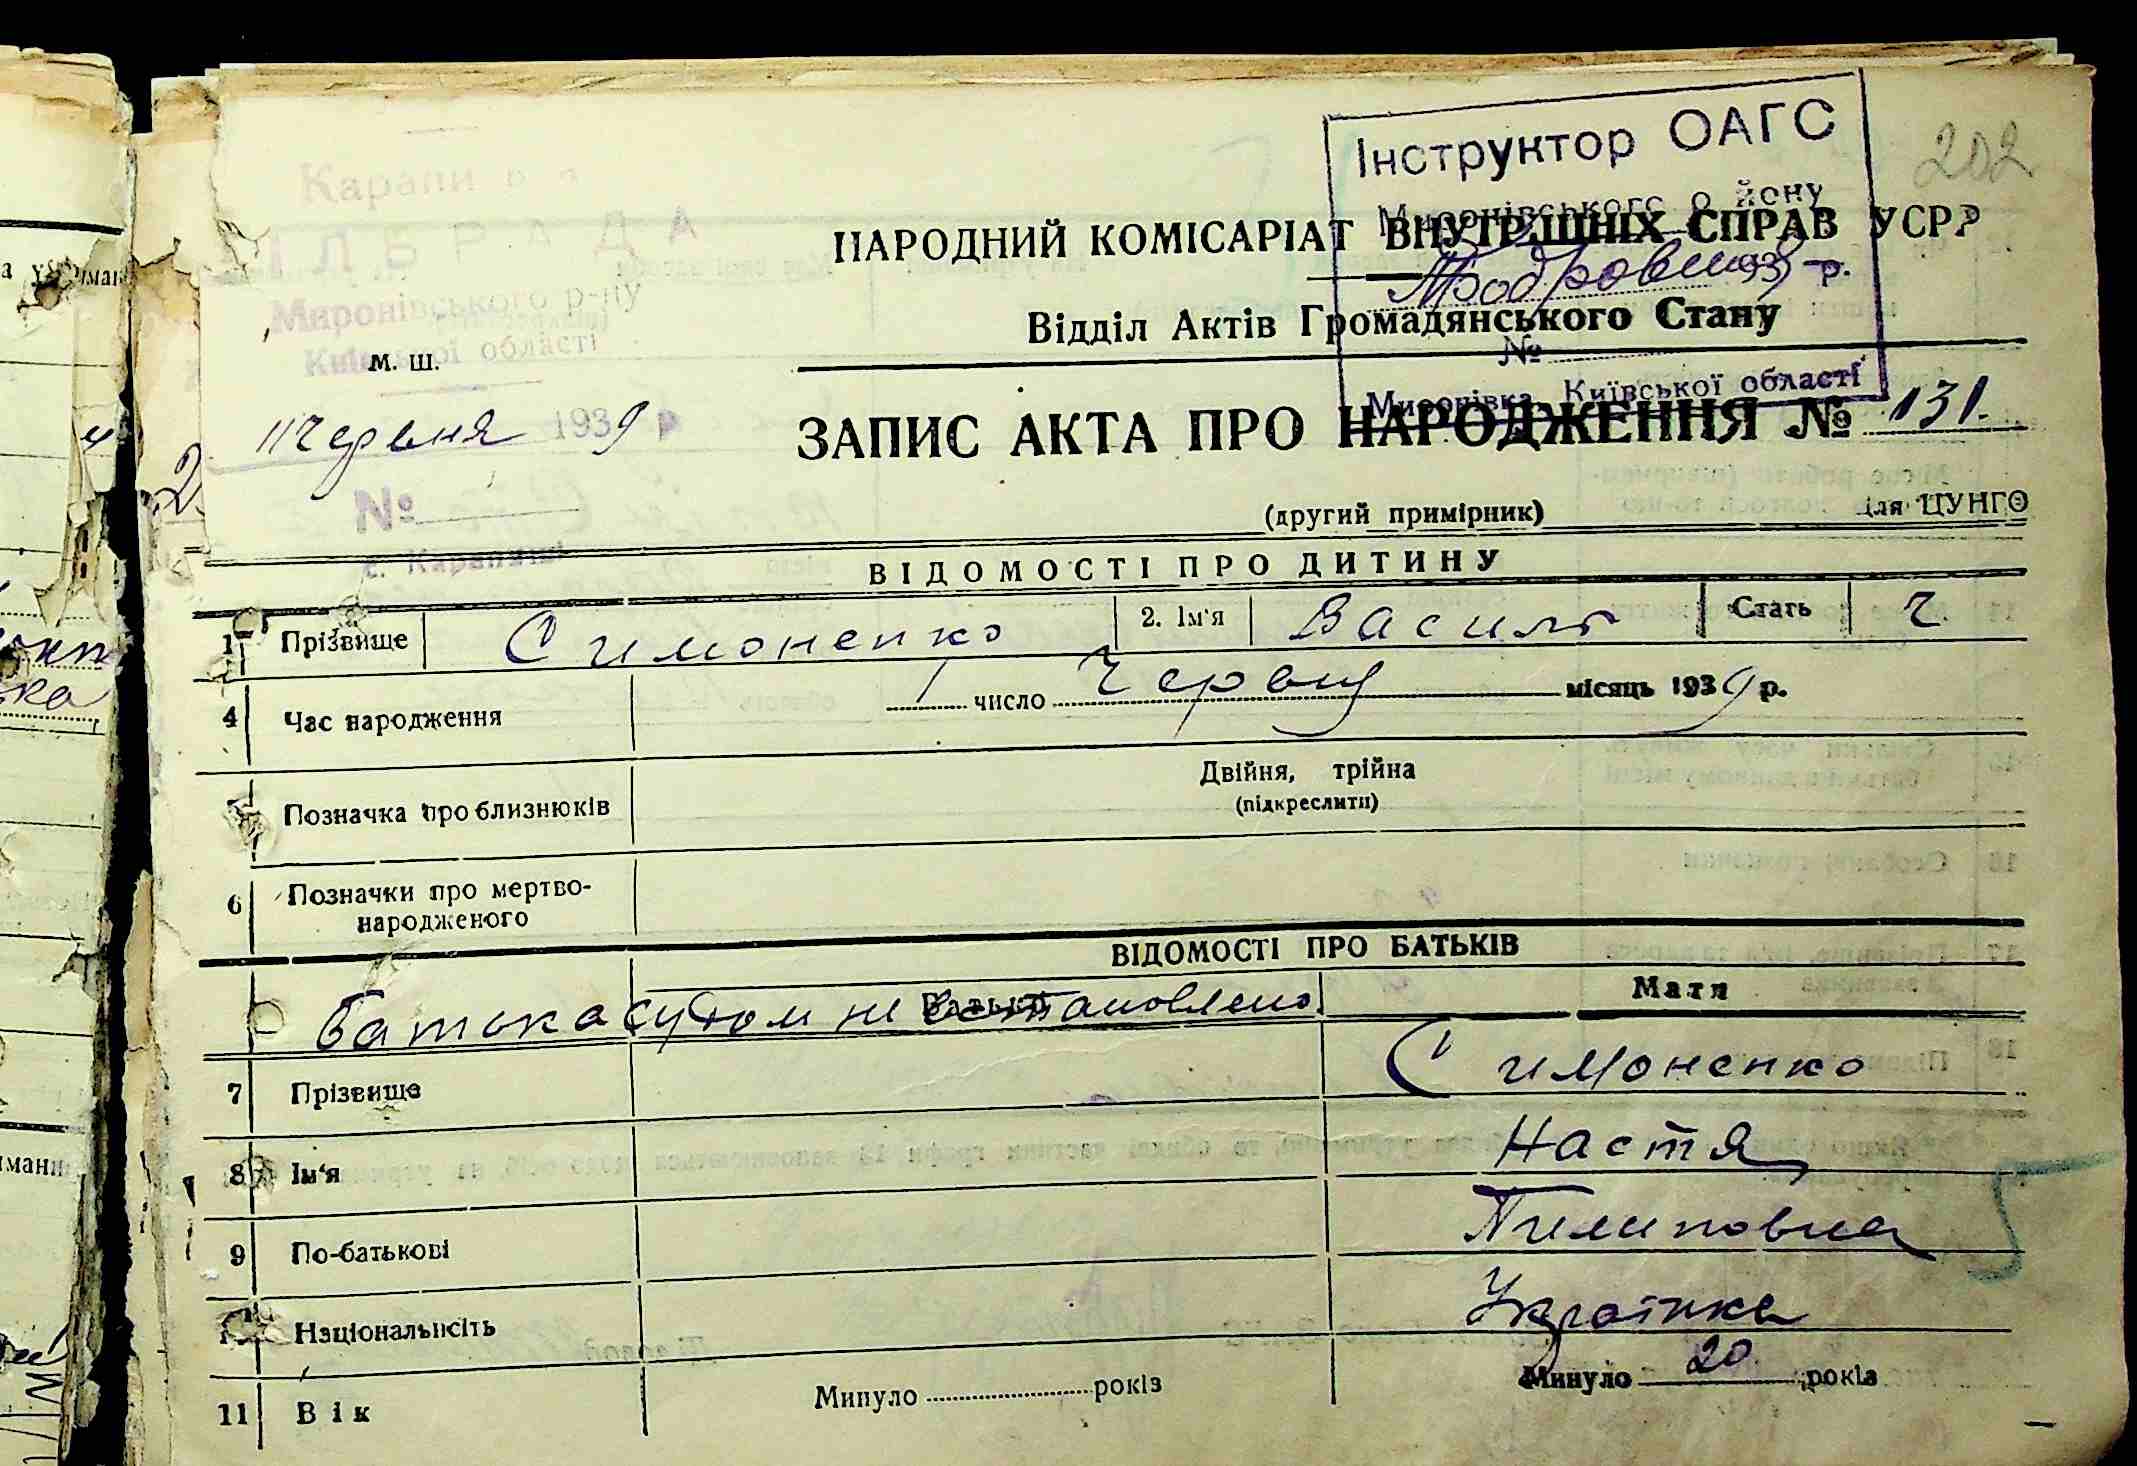 Інструктор ОАГС
202
Миронівського району
НАРОДНИЙ КОМІСАРІАТ ВНУТРІШНІХ СПРАВ УСРР
193 р.
Відділ Актів Громадянського Стану
№
Миронівка, Київської області
СІЛЬРАДА
Миронівського р-ну
Київської області
м. ш.
11 Червня 1939 р
№
с. Карапиші
ЗАПИС АКТА ПРО НАРОДЖЕННЯ № 131.
(другий примірник) Для ЦУНГО
ВІДОМОСТІ ПРО ДИТИНУ
1 Прізвище Симоненко 2. Ім'я Василь Стать Ч
4 Час народження 1 число Червня місяць 1939 р.
5 Позначка про близнюків Двійня, трійна
(підкреслити)
6 Позначки про мертво-
народженого
ВІДОМОСТІ ПРО БАТЬКІВ
Батька судом не встановлено Мати
7 Прізвище Симоненко
8 Ім'я Настя
9 По-батькові Пилиповна
Національність Украінка
11 Вік Минуло років Минуло 20 років